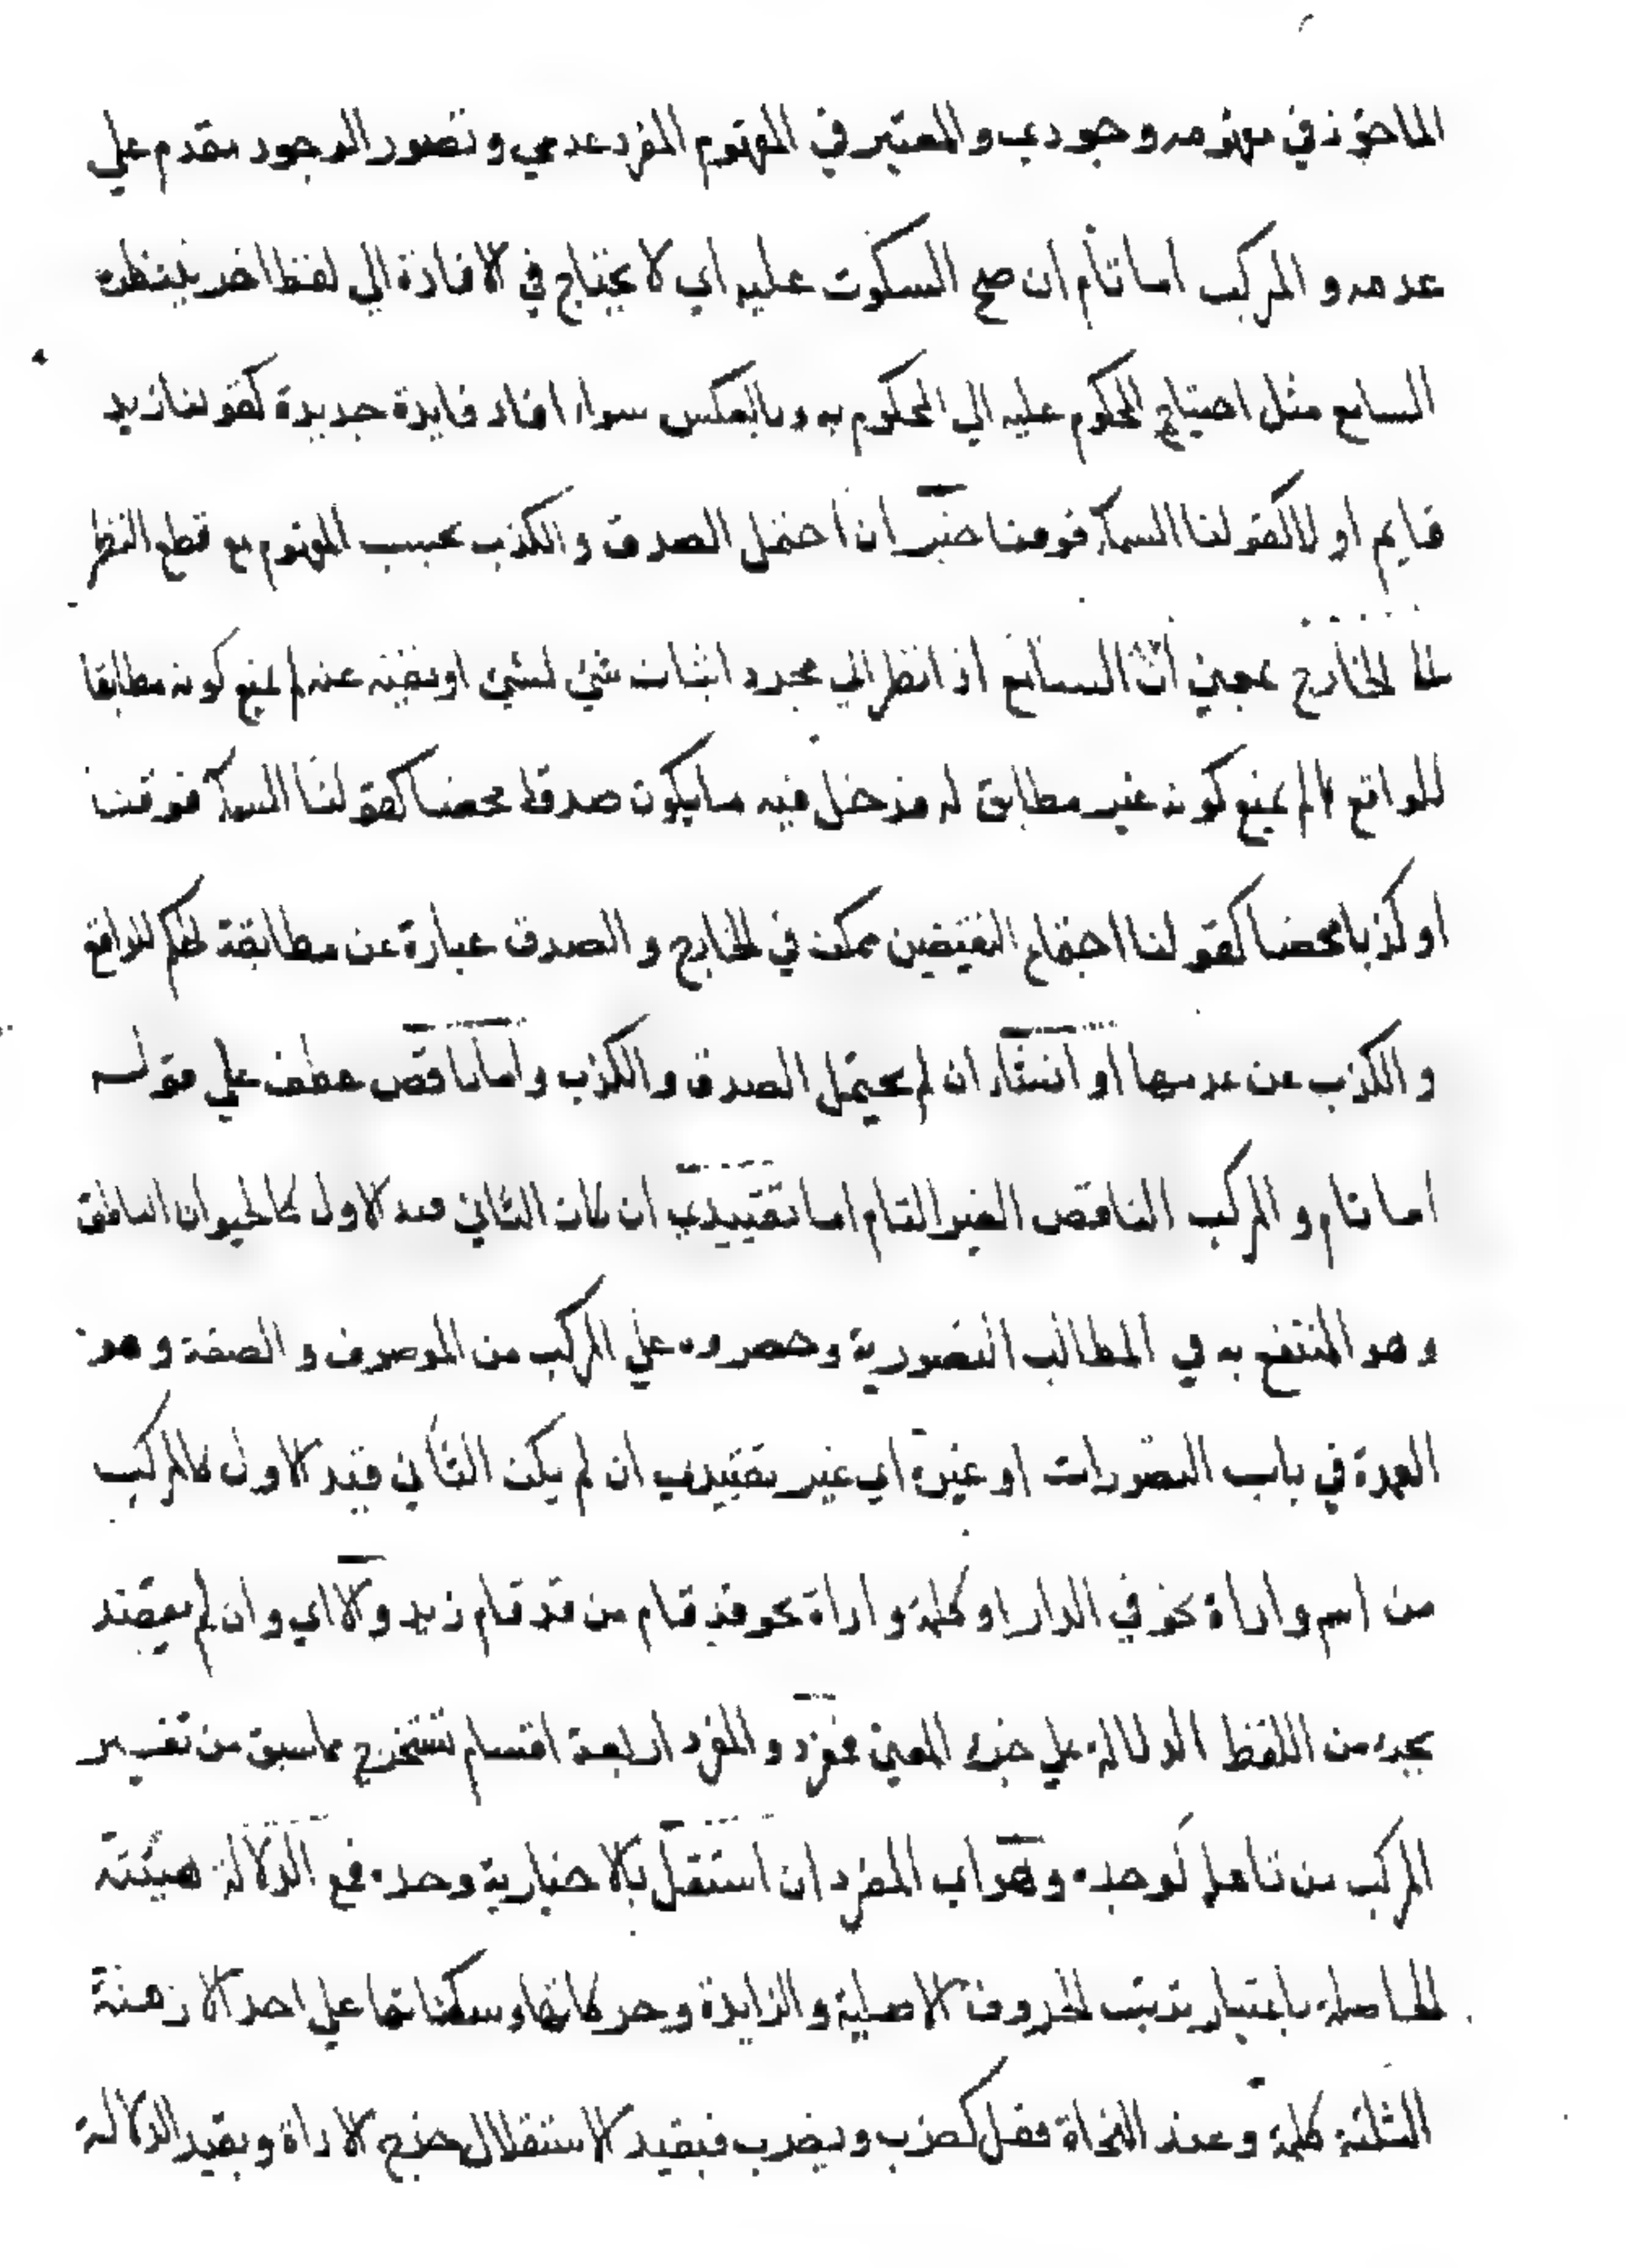 الماخوذ في مفهومه وجودي والمعتبر في المفهوم المفرد عدمي وتصور الوجود مقدم علي
عدمه والمركب اما تام ان صح السكوت عليه اي لا يحتاج في الافادة الي لفظ اخر ينتظره
السامع مثل احتياج المحكوم عليه الي المحكوم به وبالعكس سواء افاد فايدة جديدة كقولنا زيد
قايم او لا كقولنا السماء فوقنا خبر ان احتمل الصدق والكذب بحسب المفهوم مع قطع النظر
عما في الخارج بمعني ان السامع اذا نظر الي مجرد اثبات شئ لشئ او نفيه عنه لم يمنع كونه مطابقا
للواقع كما لم يمنع كونه غير مطابق له فدخل فيه ما يكون صدقا محضا كقولنا السماء فوقنا
او كذبا محضا كقولنا اجتماع النقيضين ممكن في الخارج والصدق عبارة عن مطابقة الحكم للواقع
والكذب عن عدمها او انشاء ان لم يحتمل الصدق والكذب واما ناقص عطف علي قوله
اما تام والمركب الناقص الغير التام اما تقييدي ان كان الثاني قيد الاول كالحيوان الناطق
وهو المنتفع به في المطالب التصورية وحصروه علي المركب من الموصوف والصفة وهو
العمدة في باب التصورات او غيره اي غير تقييدي ان لم يكن الثاني قيد الاول كالمركب
من اسم واداة نحو في الدار او كلمة واداة نحو قد قام من قد قام زيد والا اي وان لم يقصد
بجزء من اللفظ الدلالة علي جزء المعني فمفرد والمفرد اربعة اقسام تستخرج مما سبق من تفسير
المركب من تامل لوجده وهو اي المفرد ان استقل بالاخبارية وحده فمع الدلالة هيئته
الحاصلة باعتبار ترتيب الحروف الاصلية والزايدة وحركاتها وسكناتها علي احد الازمنة
الثلثة كلمة وعند النحاة فعل كضرب ويضرب فبقيد الاستقلال خرج الاداة وبقيد الدلالة